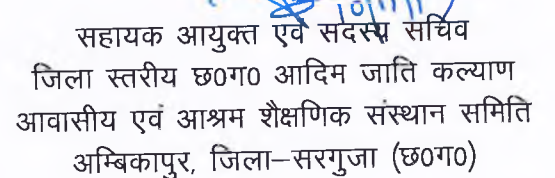 सहायक आयुक्त एवं सदस्य सचिव
जिला स्तरीय छ0ग0 आदिम जाति कल्याण
आवासीय एवं आश्रम शैक्षणिक संस्थान समिति
अम्बिकापुर, जिला–सरगुजा (छ0ग0)